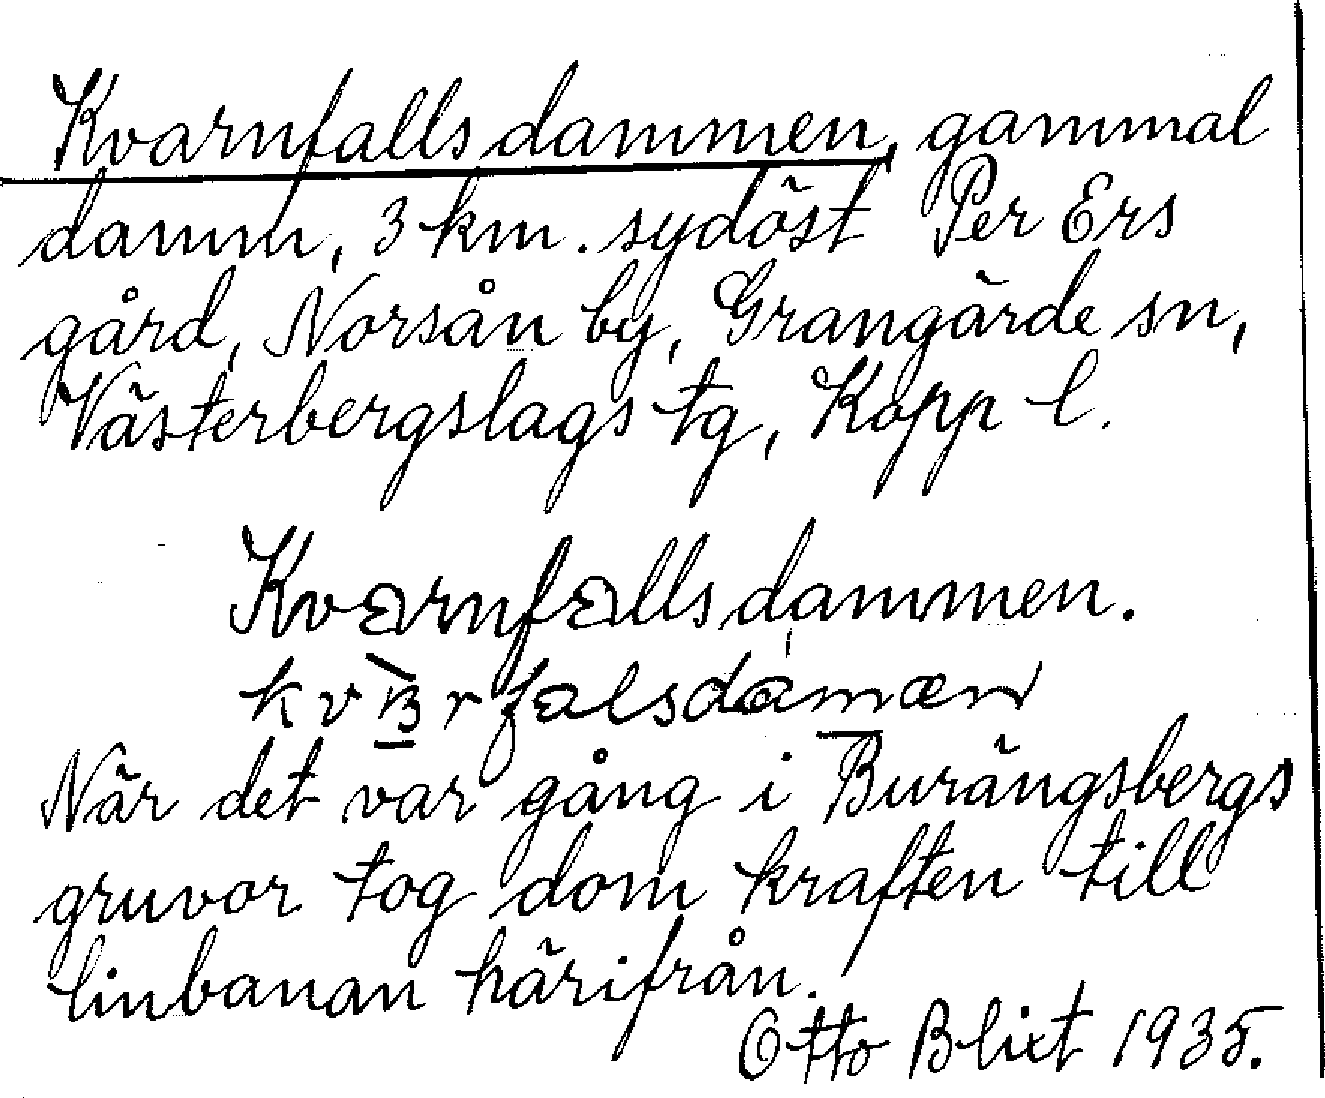 Kvarnfallsdammen, gammal
damm, 3 km. sydöst Per Ers
gård, Norsån by, Grangärde sn,
Västerbergslags tg, Kopp l.
Kvarnfallsdammen.
När det var gång i Burängsbergs
gruvor tog dom kraften till
linbanan härifrån.
Otto Blixt 1935.